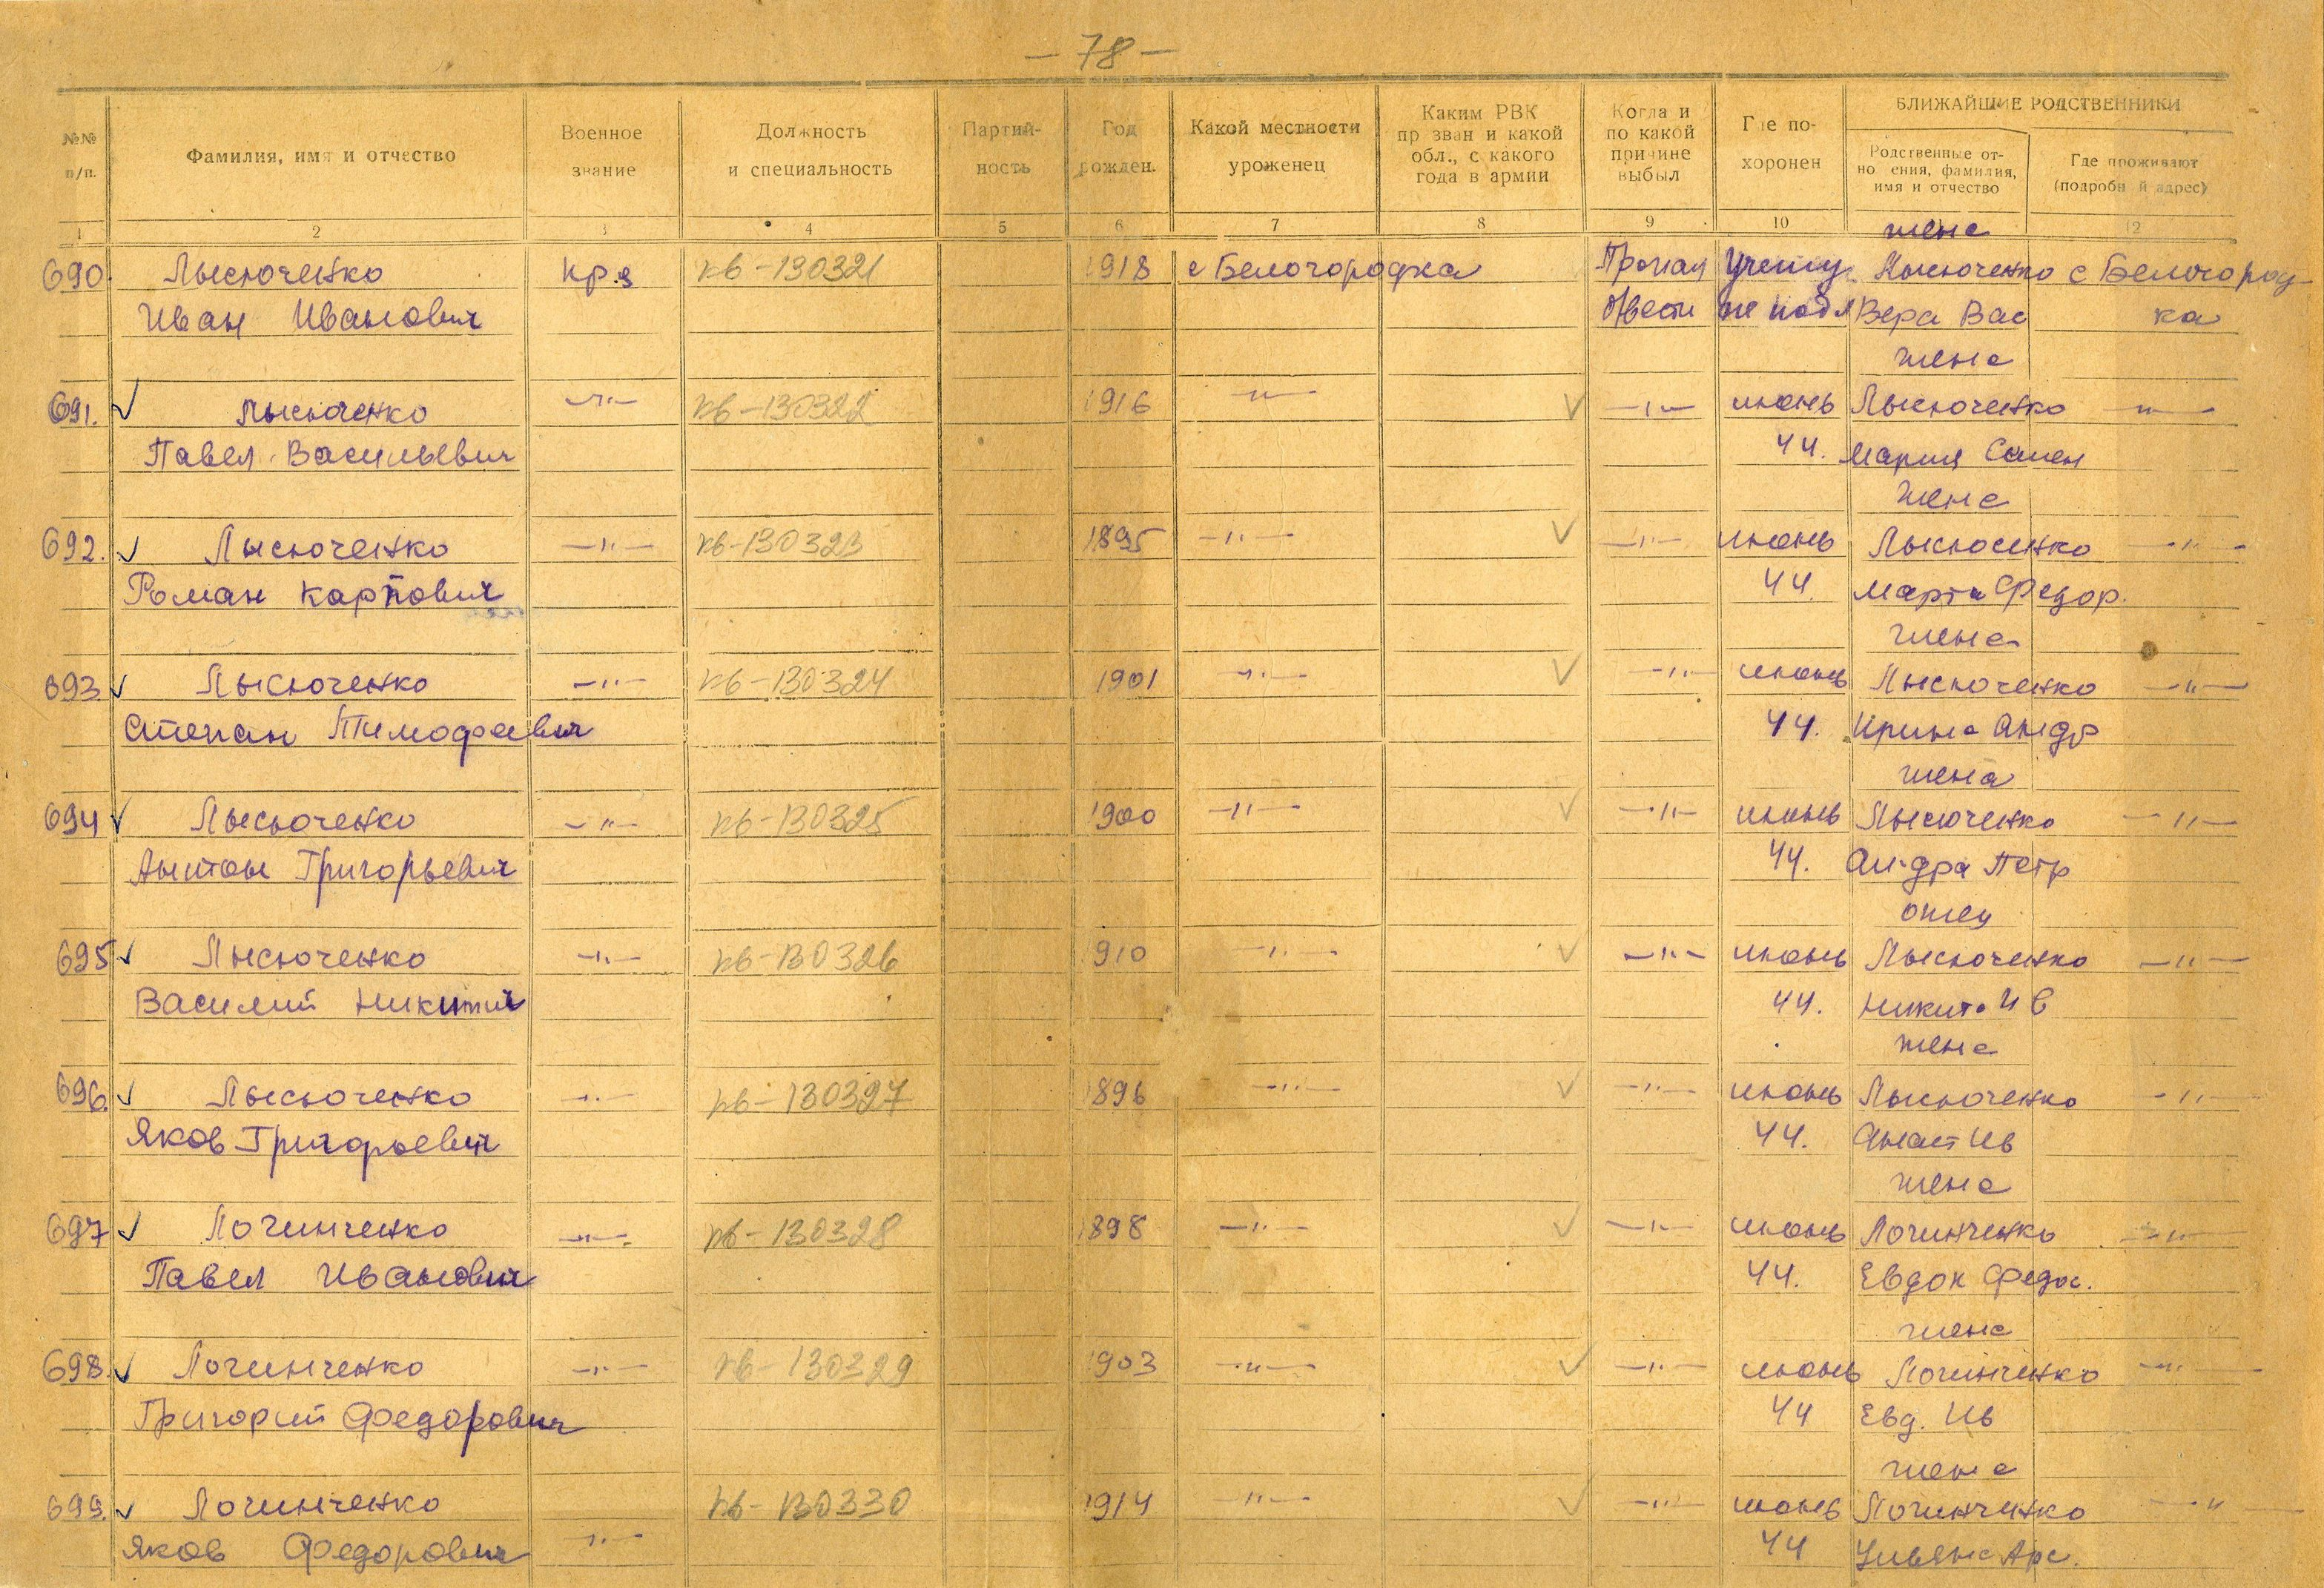 — 78 —
№№ п/п.
Фамилия, имя и отчество
Военное звание
Должность и специальность
Партийность
Год рожден.
Какой местности уроженец
Каким РВК призван и какой обл., с какого года в армии
Когда и по какой причине выбыл
Где похоронен
БЛИЖАЙШИЕ РОДСТВЕННИКИ
Родственные отношения, фамилия, имя и отчество
Где проживают (подробный адрес)
1 2 3 4 5 6 7 8 9 10 12
жена
690. Лысюченко кр.ц кв-130321 1918 с Белогородка Пропал Учету Лысюченко с Белогород-
Иван Иванович б/вести не подл Вера Вас ка
жена
691. Лысюченко —"— кв-130322 1916 —"— —"— июнь Лысюченко —"—
Павел Васильевич 44. Мария Семен
жена
692. Лысюченко —"— кв-130323 1895 —"— —"— июнь Лысюченко —"—
Роман Карпович 44. Марта Федор.
жена
693. Лысюченко —"— кв-130324 1901 —"— —"— июнь Лысюченко —"—
Степан Тимофеевич 44. Ирина Андр
жена
694 Лысюченко —"— кв-130325 1900 —"— —"— июнь Лысюченко —"—
Антон Григорьевич 44. Петр
отец
695 Лысюченко —"— кв-130326 1910 —"— —"— июнь Лысюченко —"—
Василий Никитич 44. Никита Ив
жена
696. Лысюченко —"— кв-130327 1896 —"— —"— июнь Лысюченко —"—
Яков Григорьевич 44. Анаст Ив
жена
697 Логинченко —"— кв-130328 1898 —"— —"— июнь Логинченко —"—
Павел Иванович 44. Евдок Федос.
жена
698. Логинченко —"— кв-130329 1903 —"— —"— июнь Логинченко —"—
Григорий Федорович 44 Евд. Ив
жена
699. Логинченко кв-130330 1914 —"— —"— июнь Логинченко —"—
Яков Федорович —"— 44 Ульяна Арс.